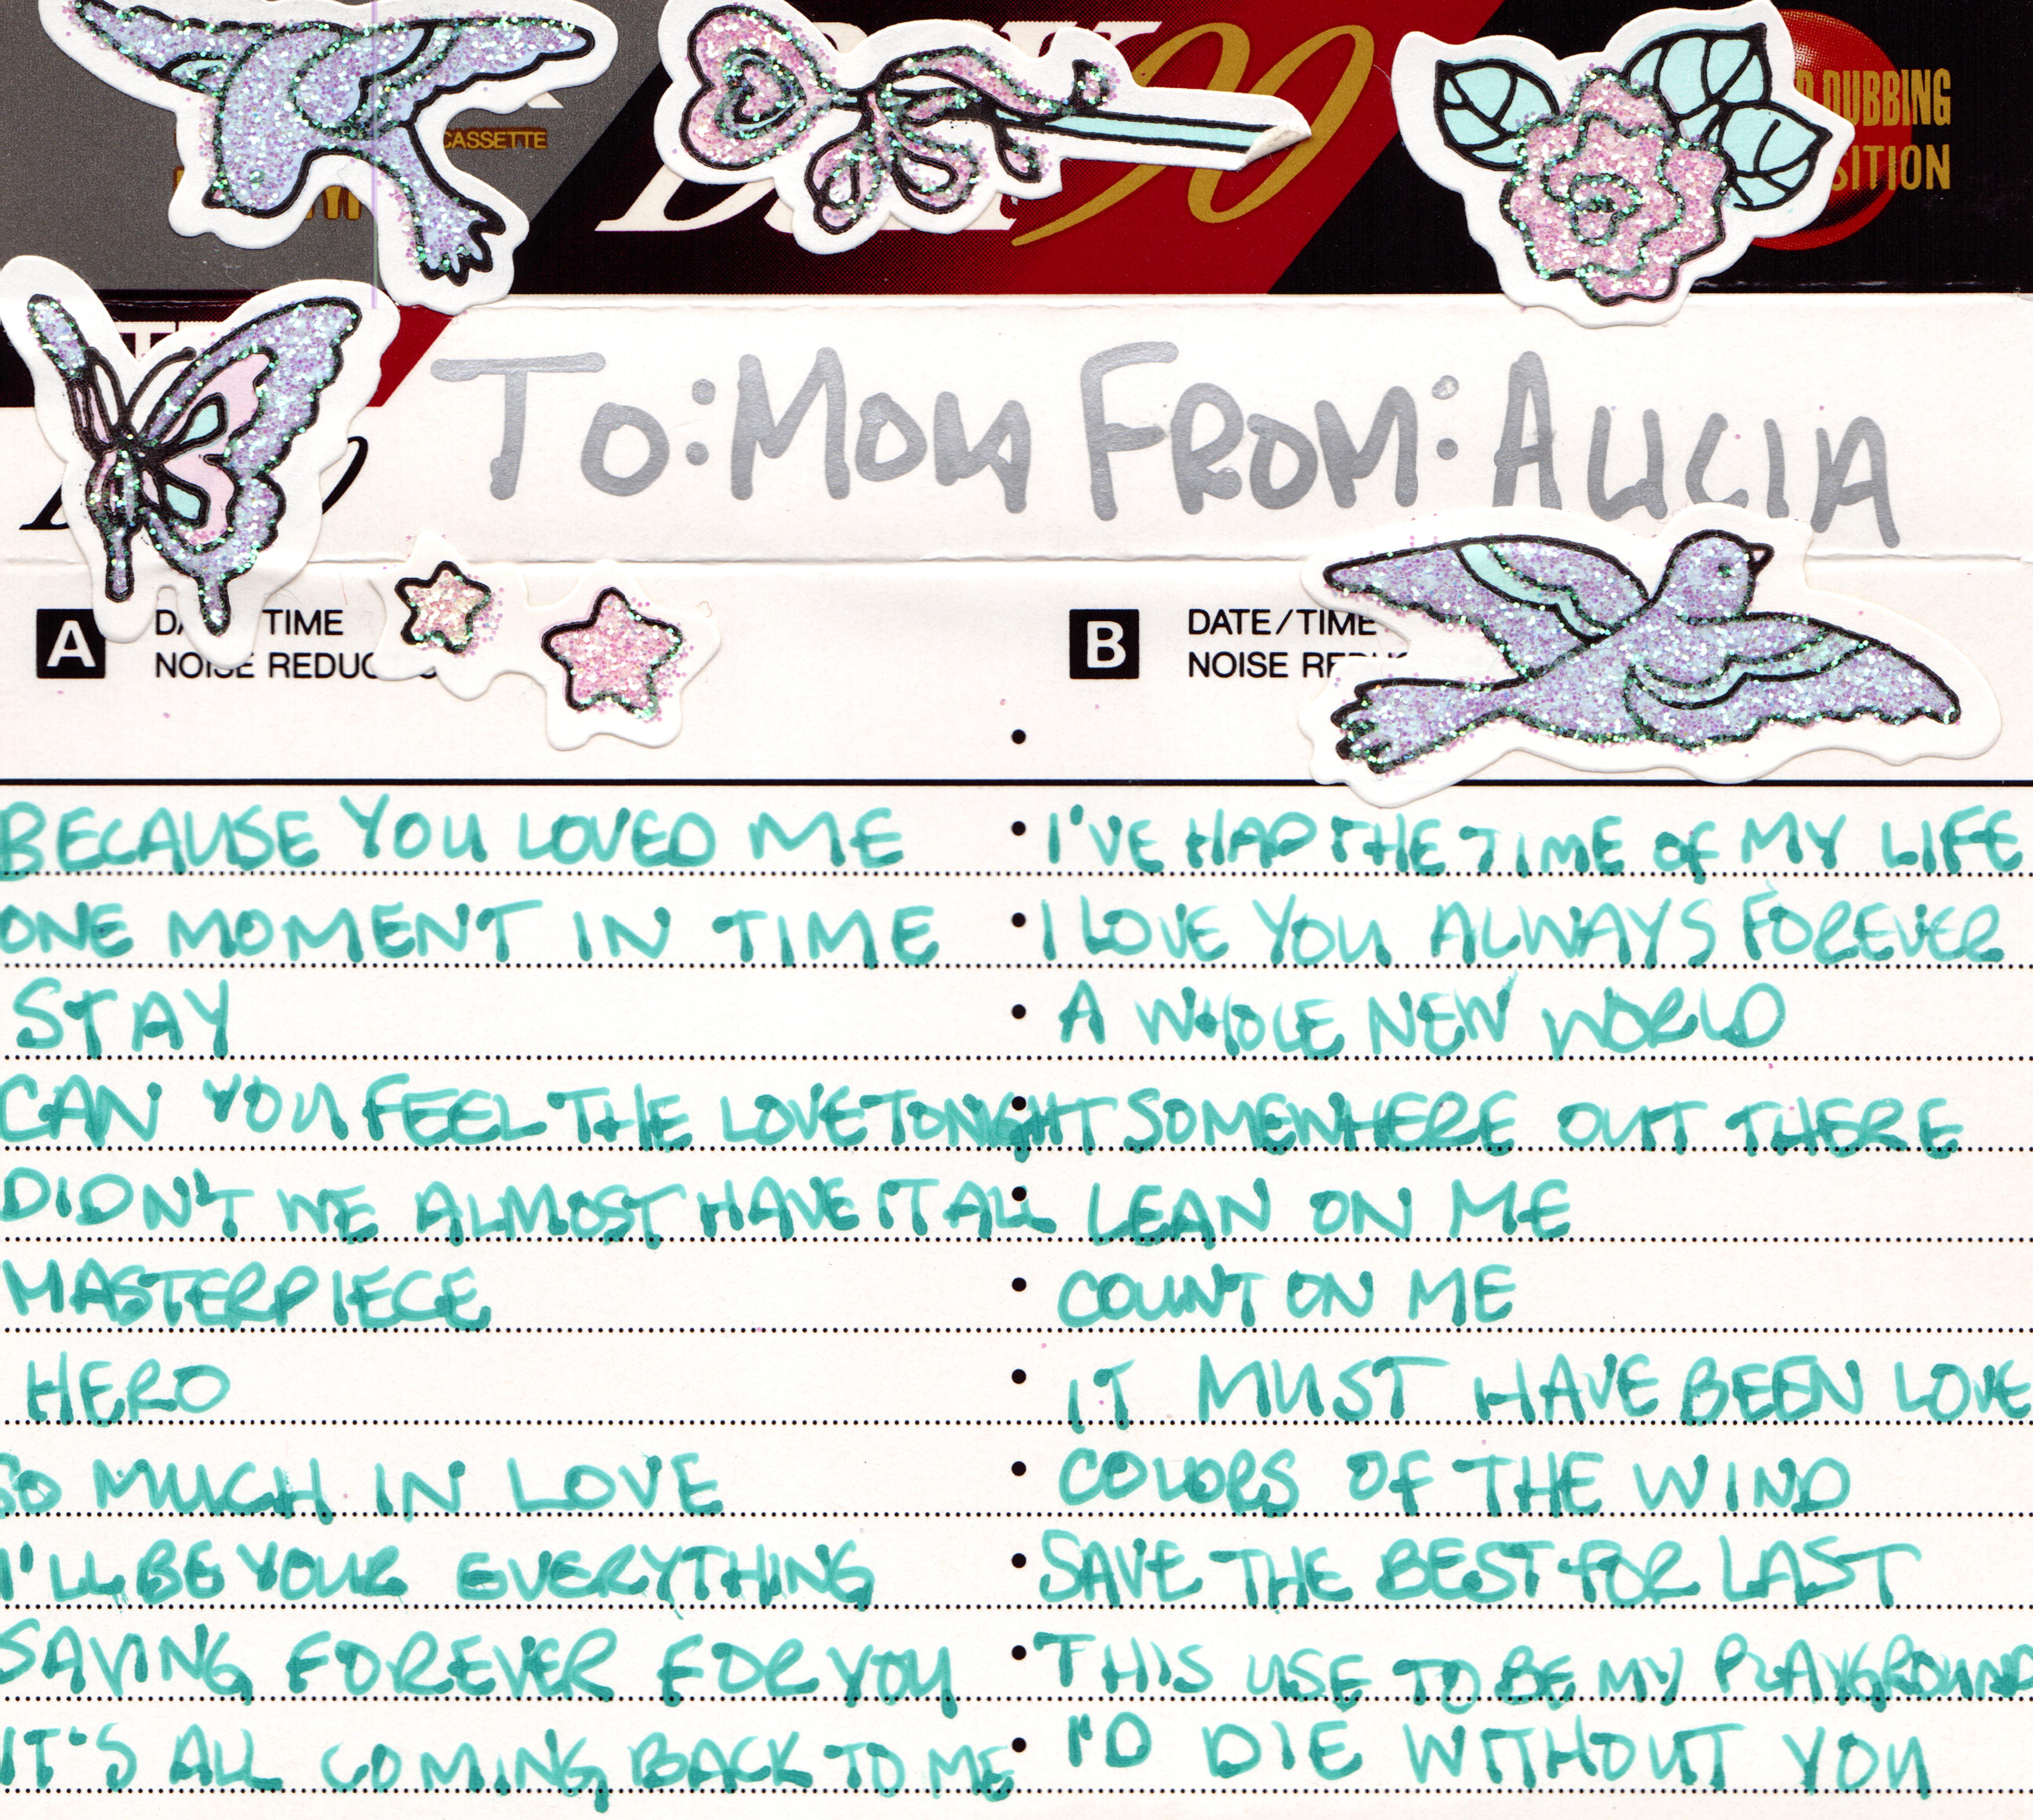 CASSETTE
90
DUBBING
SITION
To: Mom From: Alicia
A
TIME
NOISE REDUC
B
DATE/TIME
NOISE
BECAUSE YOU LOVED ME
ONE MOMENT IN TIME
STAY
CAN YOU FEEL THE LOVE TONIGHT
DIDN'T WE ALMOST HAVE IT ALL
MASTERPIECE
HERO
SO MUCH IN LOVE
I'LL BE YOUR EVERYTHING
SAVING FOREVER FOR YOU
IT'S ALL COMING BACK TO ME
I'VE HAD THE TIME OF MY LIFE
I LOVE YOU ALWAYS FOREVER
A WHOLE NEW WORLD
SOMEWHERE OUT THERE
LEAN ON ME
COUNT ON ME
IT MUST HAVE BEEN LOVE
COLORS OF THE WIND
SAVE THE BEST FOR LAST
THIS USE TO BE MY PLAYGROUND
I'D DIE WITHOUT YOU